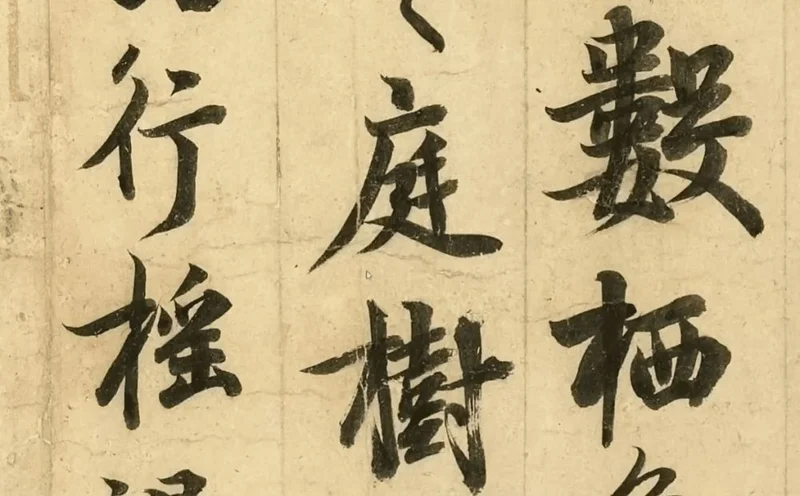 數栖
庭樹
行摇